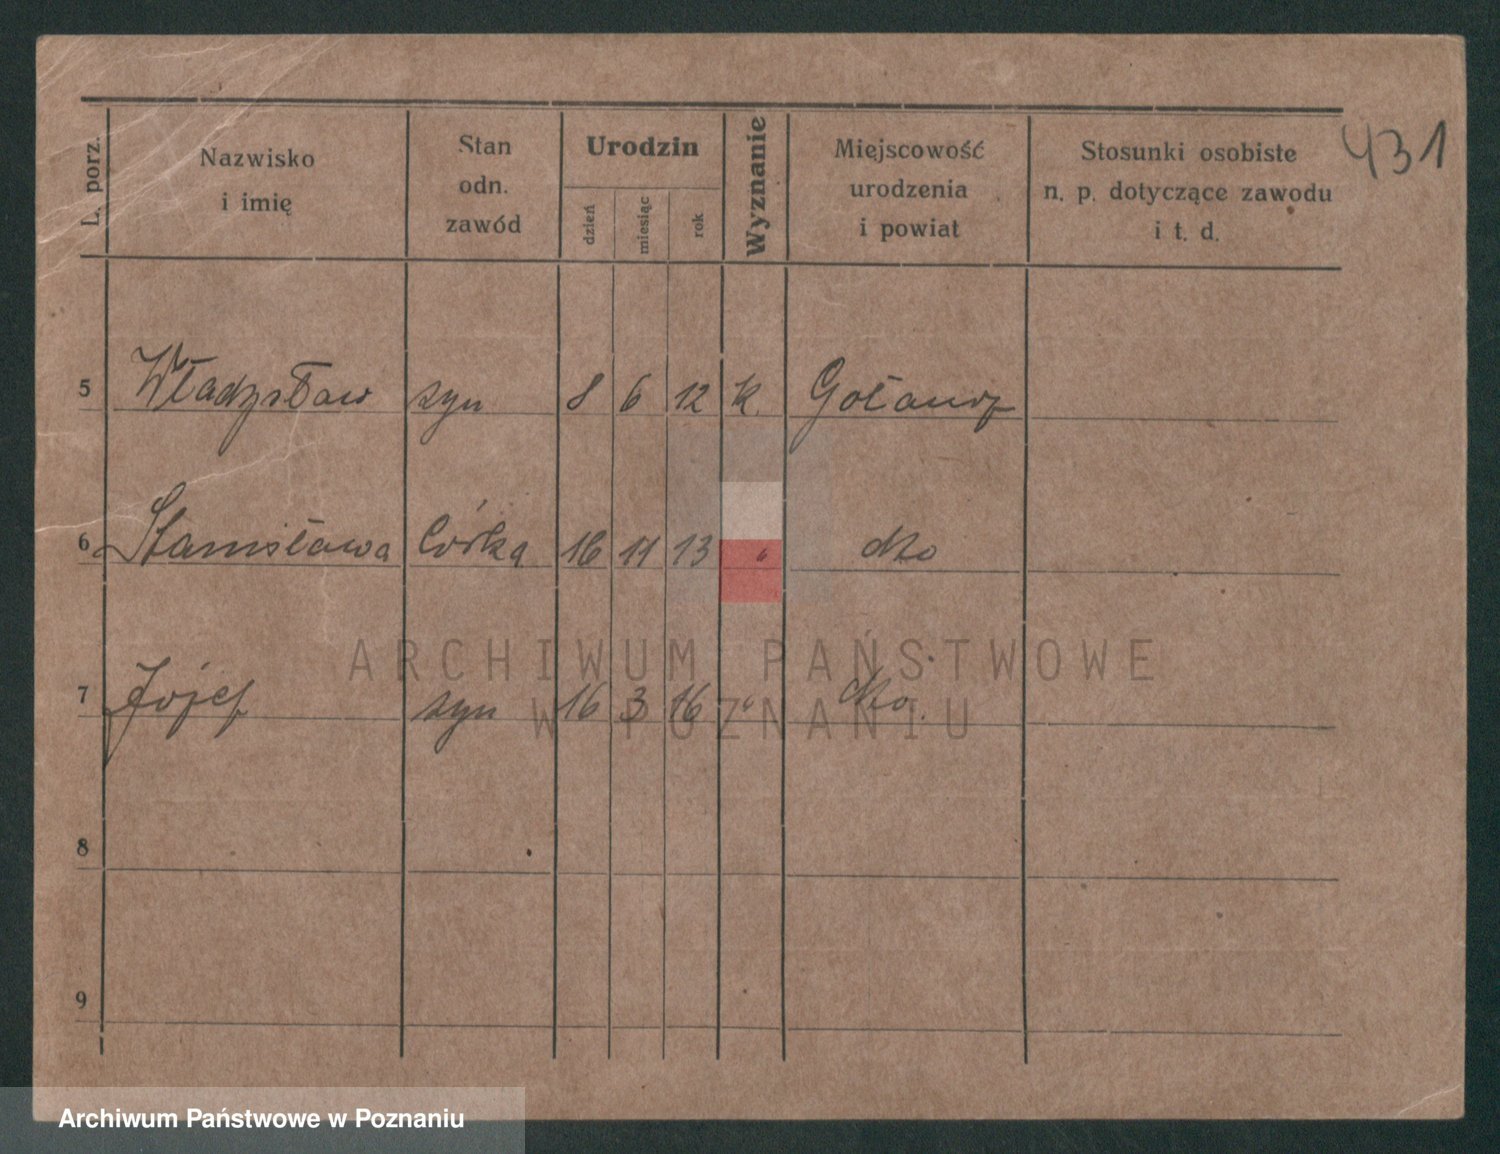 431
L. porz.
Nazwisko
i imię
Stan
odn.
zawód
Urodzin
dzień
miesiąc
rok
Wyznanie
Miejscowość
urodzenia
i powiat
Stosunki osobiste
n. p. dotyczące zawodu
i t. d.
5 Władysław syn 8 6 12 k. Gołańcz
6 Stanisława Córka 16 11 13 " dto
7 Józef syn 16 3 16 " dto.
8
9
ARCHIWUM PAŃSTWOWE
W POZNANIU
Archiwum Państwowe w Poznaniu